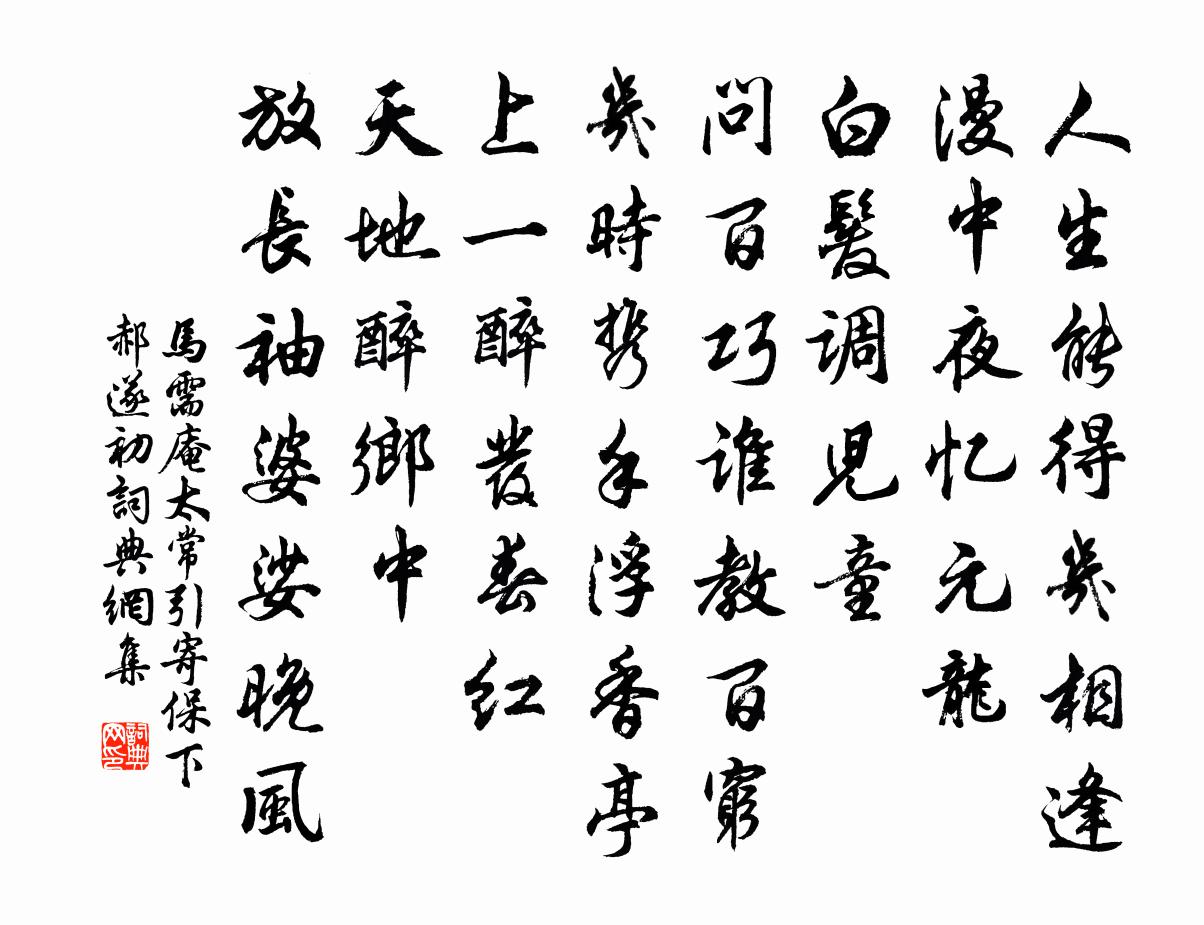 人生能得幾相逢
漫中夜忆元龍
白髮調児童
問百巧誰教百窮
幾時携手浮香亭
上一醉發春红
天地醉鄉中
放長袖婆娑晚風
馬需庵太常引寄保下
郝遂初詞典網集
詞典网印